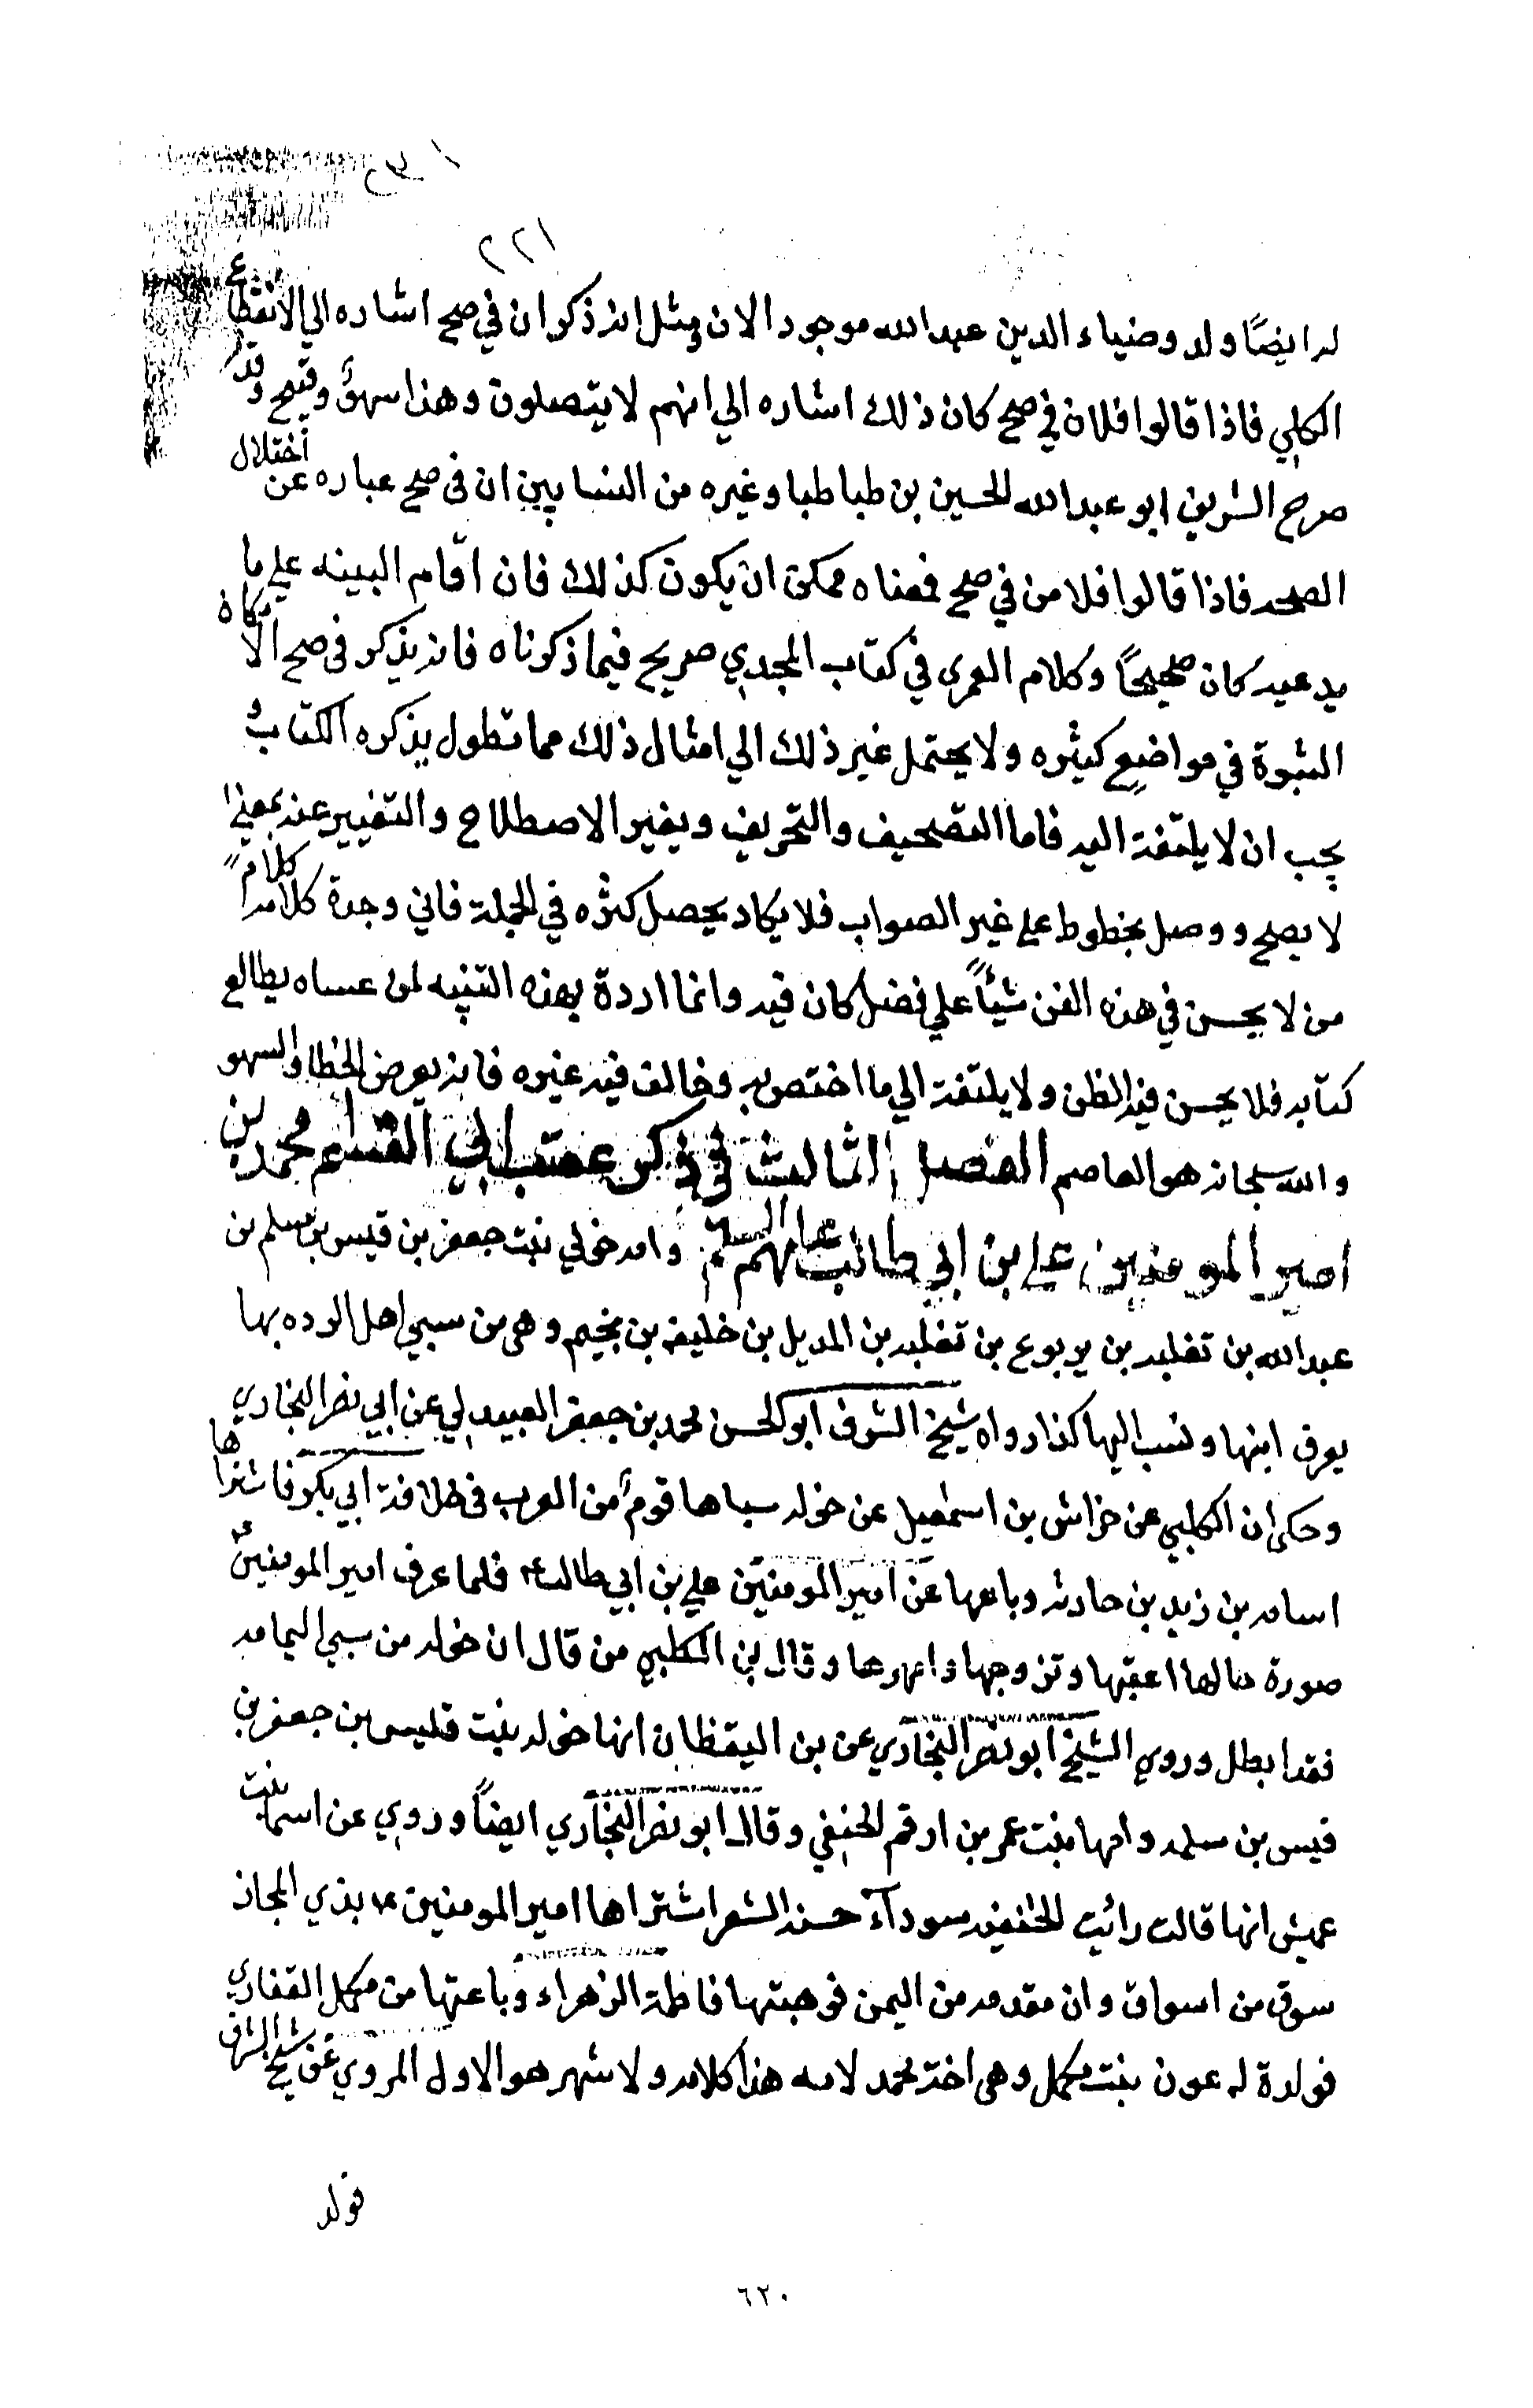 ٢٣١
٢٢١
له ايضًا ولد وضياء الدين عبدالله موجود الان ومثل انه ذكر ان في صح اشاره الي الانقطاع
الكلي فاذا قالوا فلان في صح كان ذلك اشاره الي انهم لا يتصلون وهذا سهوٌ وقبيح وقد
صرح الشريف ابو عبدالله الحسين بن طباطبا وغيره من النسابيين ان في صح عباره عن أختلال
الصحه فاذا قالوا فلا من في صح فمعناه ممكن ان يكون كذلك فان اقام البينه علي ما
يدعيه كان صحيحًا وكلام العمري في كتاب المجدي صريح فيما ذكرناه فانه يذكر في صح الامكان
الثبوة في مواضع كثيره ولا يحتمل غير ذلك الي امثال ذلك مما تطول بذكره الكتاب
يجب ان لا يلتفة اليه فاما التصحيف والتحريف ويغير الاصطلاح والتغيير عنه بمعني
لا يصح ووصل بخطوط علي غير الصواب فلا يكاد يحصل كثره في الجملة فاني وجدة كلامه كلام
من لا يحسن في هذه الفن شيئاً علي فضل كان فيه وانما اردة بهذه التنبيه لمن عساه يطالع
كتابه فلا يحسن فيه الظن ولا يلتفة الي ما اختص به وخالف فيه غيره فانه يعرض الخطا والسهو
والله سبحانه هو العاصم الفصل الثالث في ذكر عقب ابي القسم محمد بن
امير المومنين علي بن ابي طالب عليهم السلم وامه خولي بنت جعفر بن قيس بن مسلم بن
عبدالله بن تغلبه بن يربوع بن تغلبه بن الديل بن خليفه بن نجيم وهي من سبي اهل الرده بها
يعرف ابنها ونسب اليها كذا رواه شيخ الشرف ابو الحسن محمد بن جعفر العبيدلي عن ابي نصر البخاري
وحكى ان الكلبي عن خراش بن اسمعيل عن خوله سباها قومٌ من العرب في خلافة ابي بكر فاشتراها
اسامه بن زيد بن حادثه وباعها عن امير المومنين علي بن ابي طالب ع فلما عرف امير المومنين ع
صورة حالها اعتقها وتزوجها وامهرها وقال بن الكلبي من قال ان خوله من سبي اليمامه
فقد ابطل وروي الشيخ ابو نصر البخاري عن بن اليقظان انها خوله بنت قليس بن جعفر بن
قيس بن سلمه وامها بنت عمر بن ارقم الحنفي وقال ابو نصر البخاري ايضاً وروي عن اسما بنت
عميش انها قالت رائيت الحنفيه سوداء حسنه الشعر اشتراها امير المومنين ع بذي المجاز
سوق من اسواق وان مقدمه من اليمن فوهبتها فاطمة الزهراء وباعتها من مكمل القفاري
فولدة له عون بنت مكمل وهي اخت محمد لامه هذا كلامه ولا شهر هو الاول المروي عن شيخ الشرف
فولد
٦٢٠